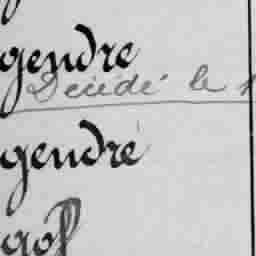 gendre
Décédé le
gendre